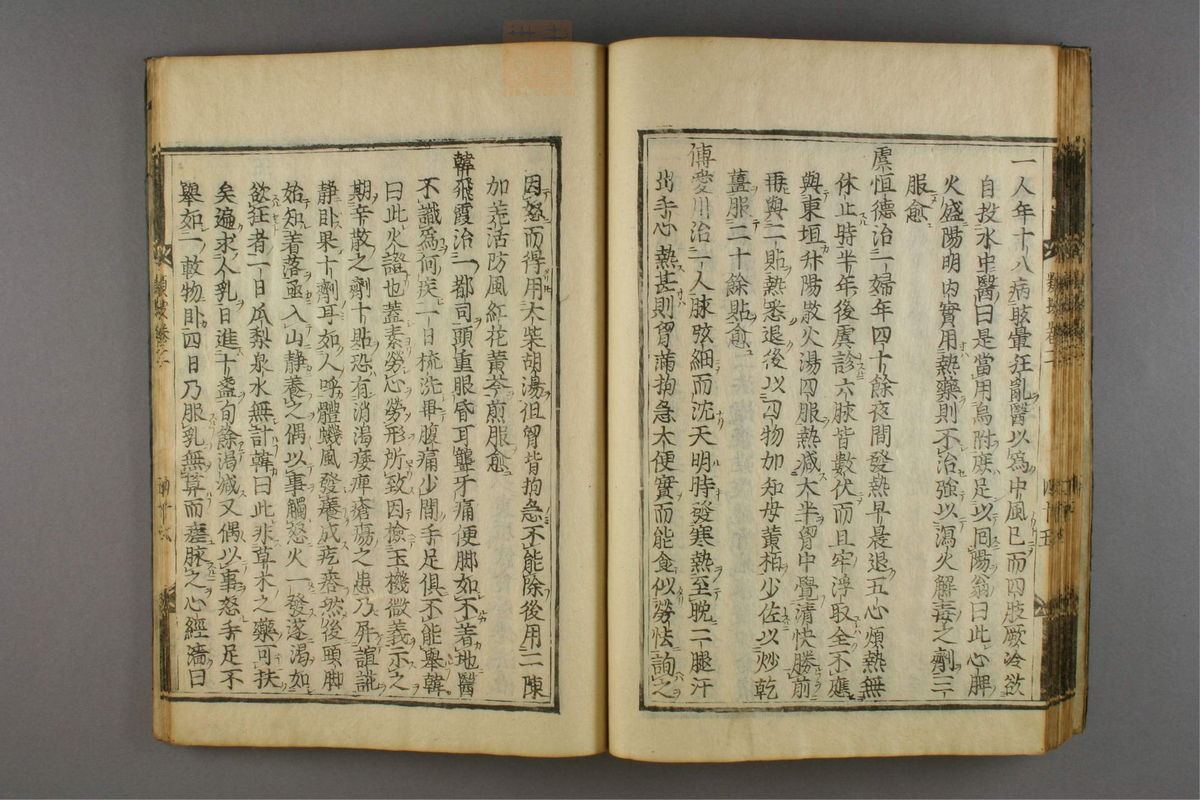 一人年十八病眩暈狂亂醫以爲中風已而四肢厥冷欲
自投水中醫曰是當用烏附庶足以回陽翁曰此心脾
火盛陽明内實用熱藥則不治強以瀉火解毒之劑三
服愈
虞恒德治一婦年四十餘夜間發熱早晨退五心煩熱無
休止時半年後虞診六脉皆數伏而且牢浮取全不應
與東垣升陽散火湯四服熱减大半胷中覺清快勝前
再與二貼熱悉退後以四物加知母黄栢少佐以炒乾
薑服二十餘貼愈
傅愛川治一人脉弦細而沈天明時發寒熱至晩二腿汗
出手心熱甚則胷滿拘急大便實而能食似勞怯詢之
因怒而得用大柴胡湯但胷背拘急不能除後用二陳
加羌活防風紅花黄芩煎服愈
韓飛霞治一都司頭重眼昏耳聾牙痛便脚如不着地醫
不識爲何疾一日梳洗畢腹痛少間手足俱不能舉韓
曰此火證也蓋素勞心勞形所致因撿玉機微義示之
期辛散之劑十貼恐有消渇痿痺瘡瘍之患乃屏諠譁
静卧果十劑耳如人呼體蟻風發癢成疙瘩然後頭脚
始知着落亟入山静養之偶以事觸怒火一發遂渇如
欲狂者一日瓜梨泉水無計韓曰此非草木之藥可扶
矣遍求人乳日進十盞旬餘渇减又偶以事怒手足不
舉如一㪣物卧四日乃服乳無算而瘥脉之心經濇曰